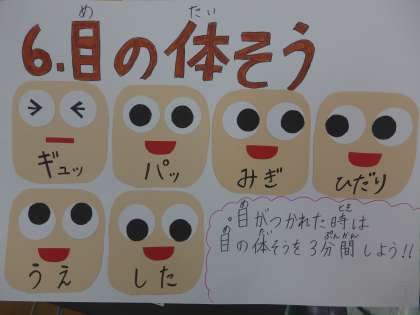 め たい
6.目の体そう
ギュッ パッ みぎ ひだり
うえ した
め とき
。目がつかれた時は
め たい ぷんかん
目の体そうを3分間しよう!!